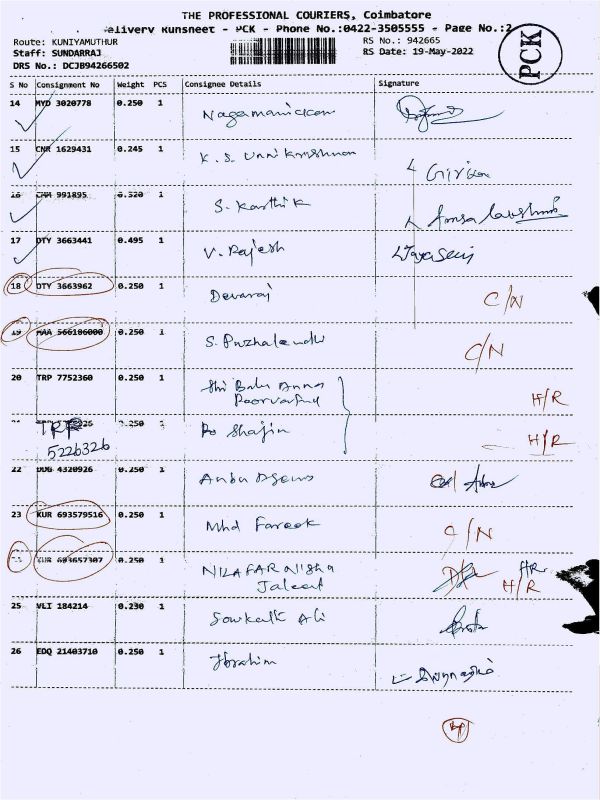 THE PROFESSIONAL COURIERS, Coimbatore
Delivery Runsheet - PCK - Phone No.:0422-3505555 - Page No.:2
Route: KUNIYAMUTHUR
Staff: SUNDARRAJ
DRS No.: DCJB94266502
RS No.: 942665
RS Date: 19-May-2022
PCK
S No Consignment No Weight PCS Consignee Details Signature
14 MYD 3020778 0.250 1 Nagamanickam
15 CNR 1629431 0.245 1 K. S. Unni Krishnan
16 991895 0.520 1 S. Karthik
17 DTY 3663441 0.495 1 V. Rajesh
18 DTY 3663962 0.250 1 Devaraj C/N
19 MAA 566186000 0.250 1 S. C/N
20 TRP 7752360 0.250 1 Shri Balu Anna
H/R
TRP 0.250 1 Shajin H/R
5226326
22 DDG 4320926 0.250 1 Anbu
23 KUR 693579516 0.250 1 Mhd Farook C/N
KUR 693657307 0.250 1 NILAFAR Nisha HR
H/R
25 VLI 184214 0.230 1 Sowkath Ali
26 EDQ 21403710 0.250 1 Ibrahim